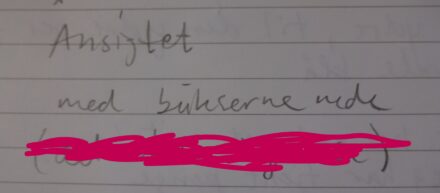 Ansigtet
med bukserne nede